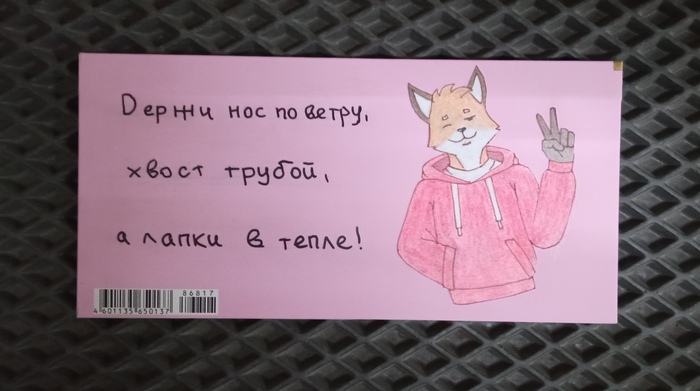 Держи нос по ветру,
хвост трубой,
а лапки в тепле!
86817
4 601135 650137